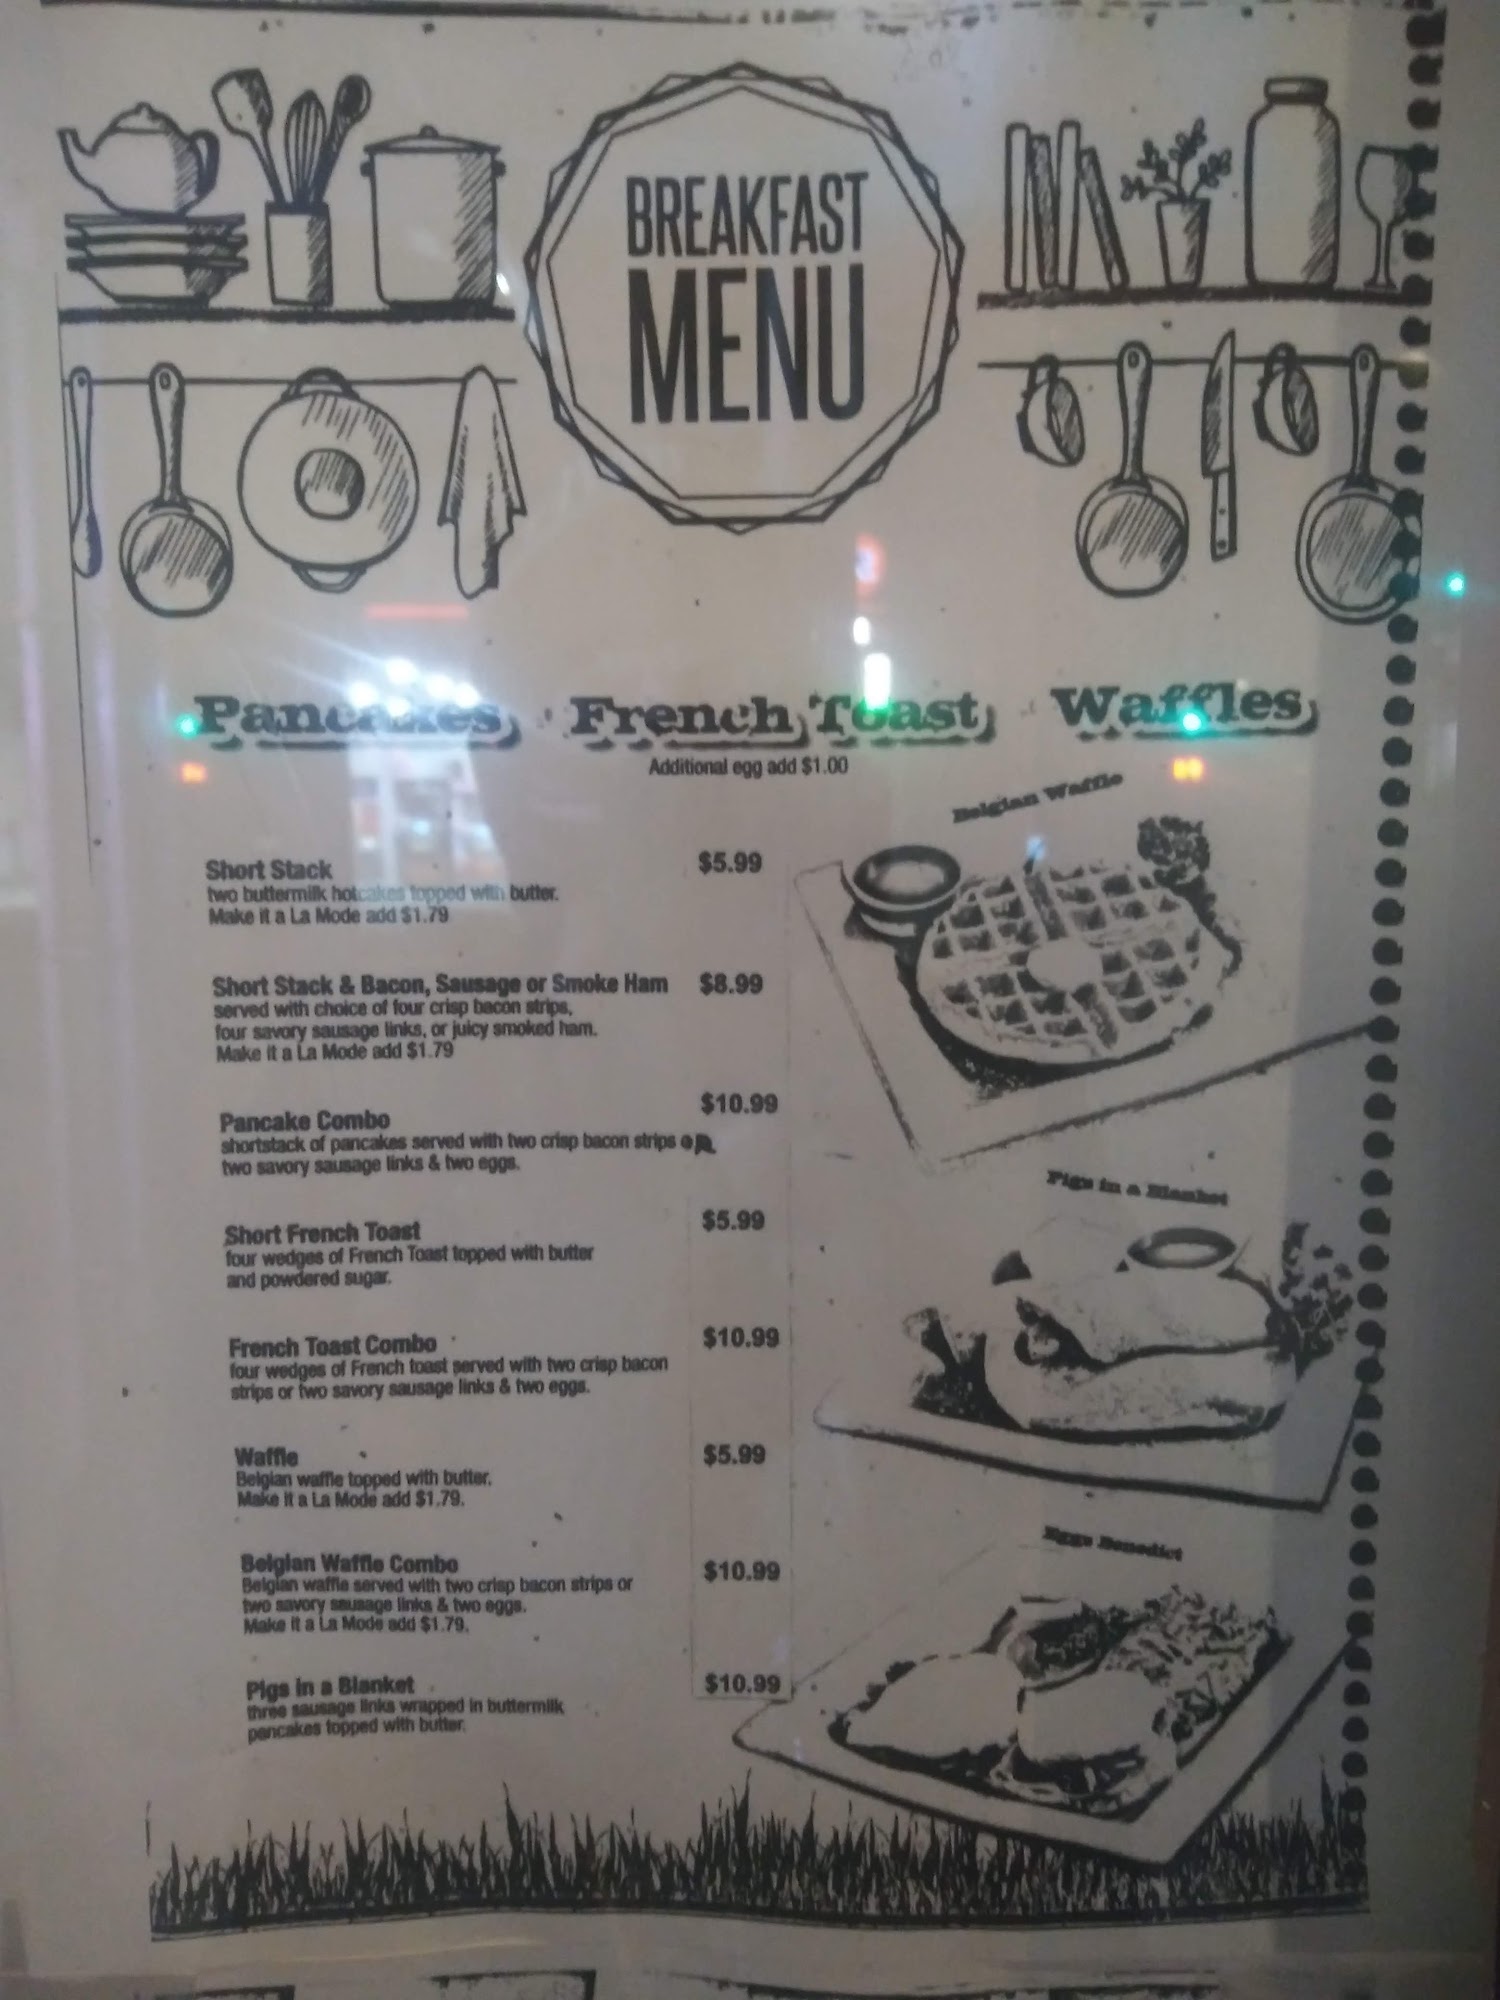 BREAKFAST
MENU
Pancakes French Toast Waffles
Additional egg add $1.00
Belgian Waffle
Short Stack $5.99
two buttermilk hotcakes topped with butter.
Make it a La Mode add $1.79
Short Stack & Bacon, Sausage or Smoke Ham $8.99
served with choice of four crisp bacon strips,
four savory sausage links, or juicy smoked ham.
Make it a La Mode add $1.79
Pancake Combo $10.99
shortstack of pancakes served with two crisp bacon strips OR
two savory sausage links & two eggs.
Pigs in a Blanket
Short French Toast $5.99
four wedges of French Toast topped with butter
and powdered sugar.
French Toast Combo $10.99
four wedges of French toast served with two crisp bacon
strips or two savory sausage links & two eggs.
Waffle $5.99
Belgian waffle topped with butter.
Make it a La Mode add $1.79.
Eggs Benedict
Belgian Waffle Combo $10.99
Belgian waffle served with two crisp bacon strips or
two savory sausage links & two eggs.
Make it a La Mode add $1.79.
Pigs in a Blanket $10.99
three sausage links wrapped in buttermilk
pancakes topped with butter.